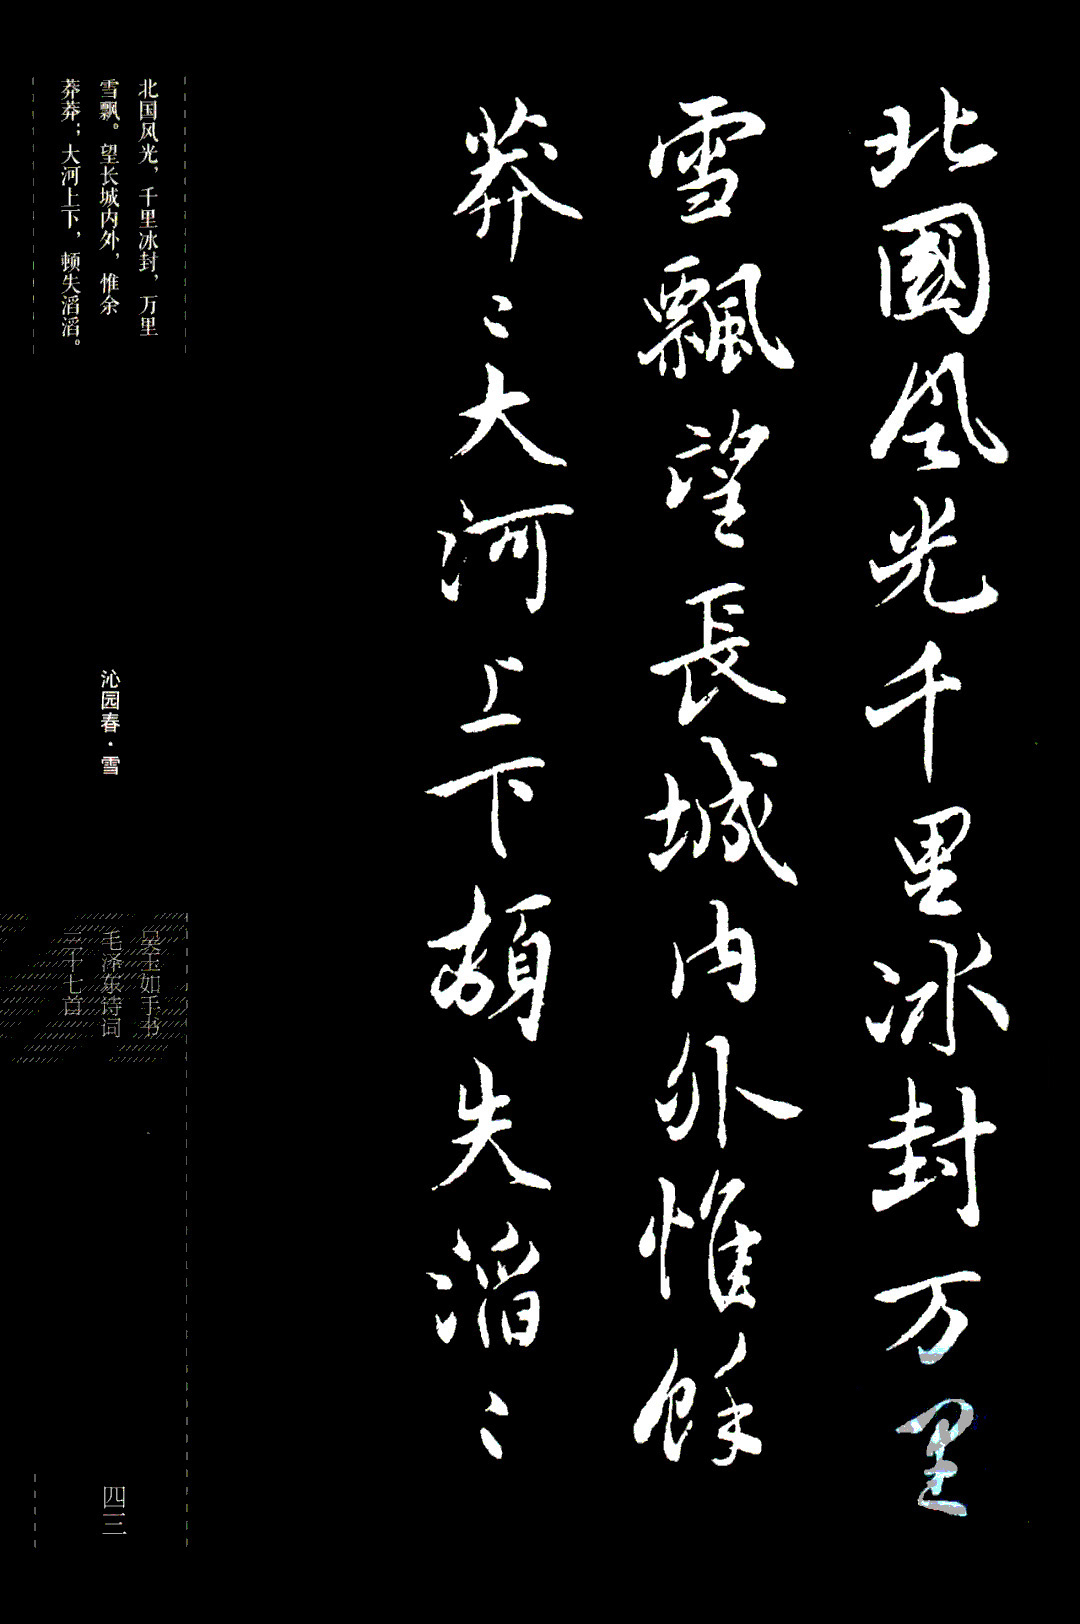 北國风光千里冰封万里
雪飄望長城内外惟餘
莽〻大河上下頓失滔〻
北国风光，千里冰封，万里
雪飘。望长城内外，惟余
莽莽；大河上下，顿失滔滔。
沁园春·雪
吴玉如手书
毛泽东诗词
三十七首
四三